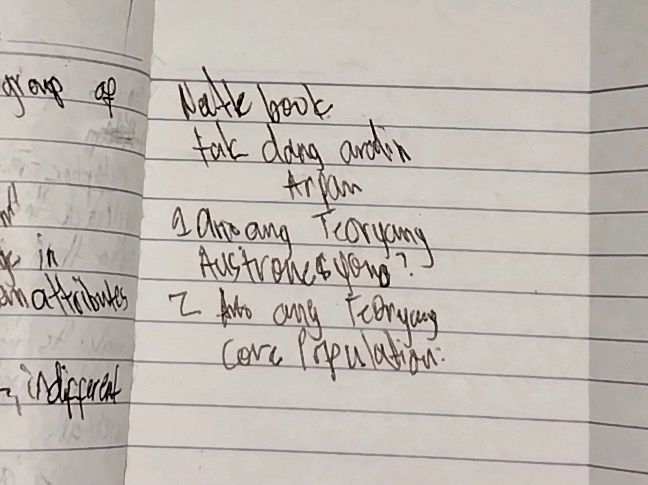 group of
in
attributes
indifferent
Natk book
tak dang aralin
Arpan
1 Ano ang Teoryang
Austronesyano?
2 Ano ang Teoryang
Core Population: